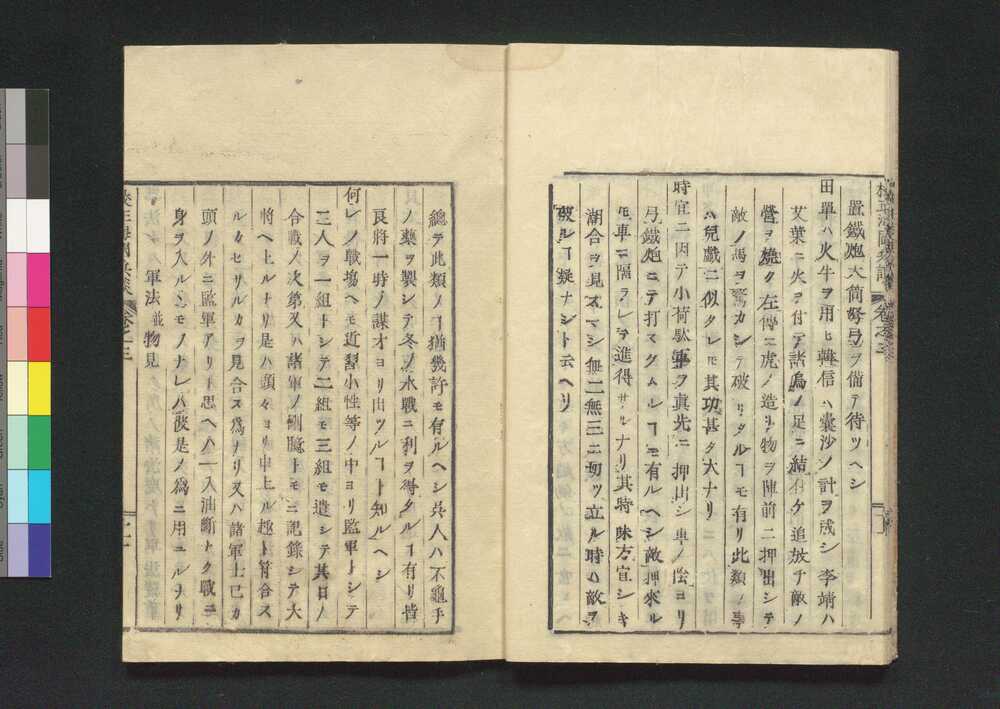 置鐵炮大筒弩弓ヲ備テ待ツヘシ
田單ハ火牛ヲ用ヒ韓信ハ嚢沙ノ計ヲ残シ李靖ハ
艾葉ニ火ヲ付テ諸鳥ノ足ニ結付ケ追放チ敵ノ
營ヲ燒ク左傳ニ虎ノ造リ物ヲ陣前ニ押出シテ
敵ノ馬ヲ驚カシテ破リタルヿモ有リ此類ノ事
ハ兒戯ニ似タレモ其功甚タ大ナリ
時宜ニ因テ小荷駄車ヲ真先ニ押出シ車ノ陰ヨリ
弓鐵炮ニテ打スクムルヿモ有ルヘシ敵押來ル
𪜈車ニ隔ラレテ進得サルナリ其時味方宜シキ
湖合ヲ見スマシ無二無三ニ切ツ立ル時ハ敵ヲ
破ルヿ疑ナシト云ヘリ
總テ此類ノヿ猶幾許モ有ルヘシ呉人ハ不龜手
ノ藥ヲ製シテ冬ノ水戰ニ利ヲ得タルヿ有リ皆
良將一時ノ謀才ヨリ出ツルヿト知ルヘシ
何レノ戰塲ヘモ近習小性等ノ中ヨリ監軍トシテ
三人ヲ一組トシテ二組モ三組モ遣シテ其日ノ
合戰ノ次第又ハ諸軍ノ剛臆トモニ記錄シテ大
將ヘ上ルナリ是ハ頭々ヨリ申上ル趣ト符合ス
ルカセサルカヲ見合ス爲ナリ又ハ諸軍士己カ
頭ノ外ニ監軍アリト思ヘハ一入油斷ナク戰ニ
身ヲ入ルヽモノナレハ彼是ノ爲ニ用ユルナリ
軍法並物見